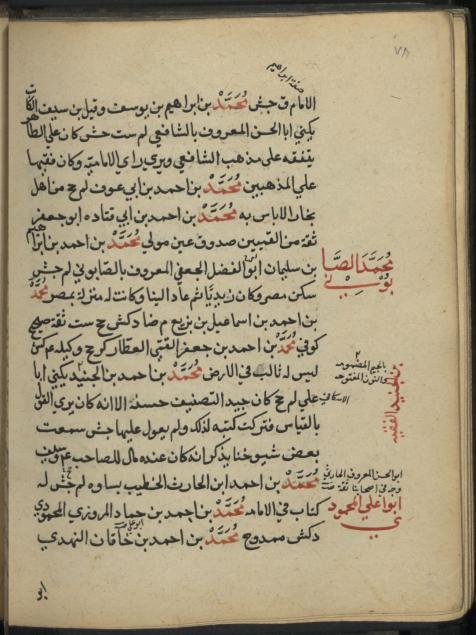 ٧٨
صفة ابراهيم
الامام ق جش مُحَمَّد بن ابراهيم بن يوسف وقيل بن سيف الكاتب
يكنى ابا الحسن المعروف بالشافعي لم ست جش كان على الظاهر
يتفقه على مذهب الشافعي ويرى راي الامامية وكان فقيها
على المذهبين مُحَمَّد بن احمد بن ابي عوف لم جخ من اهل
بخارا لاباس به مُحَمَّد بن احمد بن ابي قتاده ابو جعفر
ثقة من القميين صدوق عين مولى مُحَمَّد بن احمد بن ابراهيم
بن سليمان ابو الفضل الجعفي المعروف بالصابوني لم جش
سكن مصر وكان زيديًا ثم عاد الينا وكانت له منزلة بمصر مُحَمَّد
بن احمد بن اسماعيل بن بزيع م ضا د كش جخ ست ثقة صحيح
كوفي مُحَمَّد بن احمد بن جعفر القمي العطار كر جخ وكيله
ليس له ثالث في الارض مُحَمَّد بن احمد بن الجنيد يكنى ابا
علي لم جخ كان جيد التصنيف حسنه الا انه كان يرى القول
بالقياس فتركت كتبه لذلك ولم يعول عليها جش سمعت
بعض شيوخنا يذكر انه كان عنده مال للصاحب ع وسيف
مُحَمَّد بن احمد ابن الحارث الخطيب بساوه لم جش له
كتاب في الامامه مُحَمَّد بن احمد بن حماد المروزي المحمودي
ابو علي
د كش ممدوح مُحَمَّد بن احمد بن خاقان النهدي
مُحَمَّد الصَّا
بُوْنِي
بالجيم المضمومه
والنون المفتوحه
الاسكافي
بن الجنيد الفقيه
ابو الحسن المعروف الحارثي
وجه في اصحابنا ثقة
ابوا علي المحمود
ي
ابو